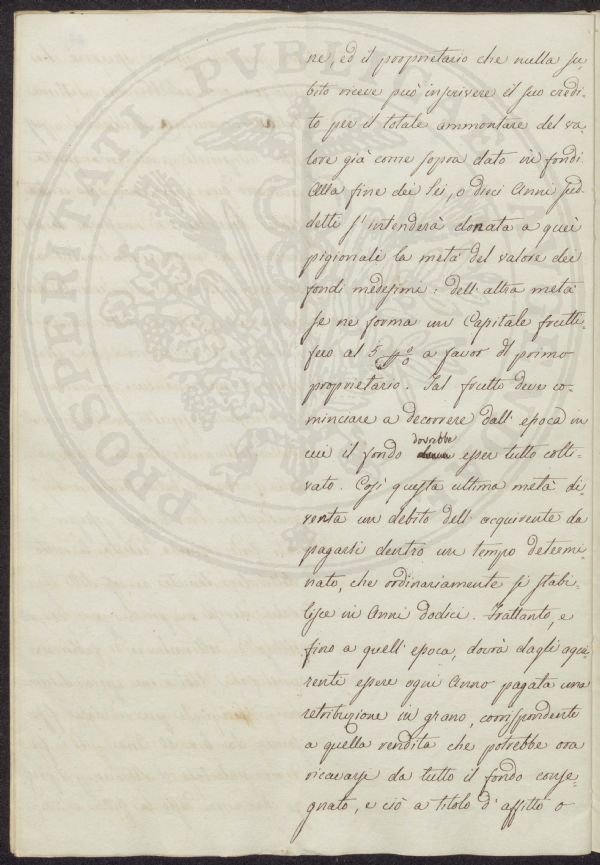 ne, ed il proprietario che nulla su,
bito riceve può inscrivere il suo credi,
to per il totale ammontare del va,
lore già come sopra dato in fondi.
Alla fine dei sei, o dieci Anni sud,
detti s'intenderà donata a quei
pigionali la metà del valore dei
fondi medesimi: dell'altra metà
se ne forma un Capitale frutti,
fero al 5 p% a favor dl primo
proprietario. Tal frutto deve co,
minciare a decorrere dall'epoca in
cui il fondo dovrebbe esser tutto colti,
vato. Così questa ultima metà di,
venta un debito dell'acquirente da
pagarsi dentro un tempo determi,
nato, che ordinariamente si stabi,
lisce in Anni dodici. Frattanto, e
fino a quell'epoca, dovrà dagli aqui
renti essere ogni Anno pagata una
retribuzione in grano, corrispondente
a quella rendita che potrebbe ora
ricavarsi da tutto il fondo conse,
gnato, e ciò a titolo d'affitto o
PROSPERITATI PVBLICAE